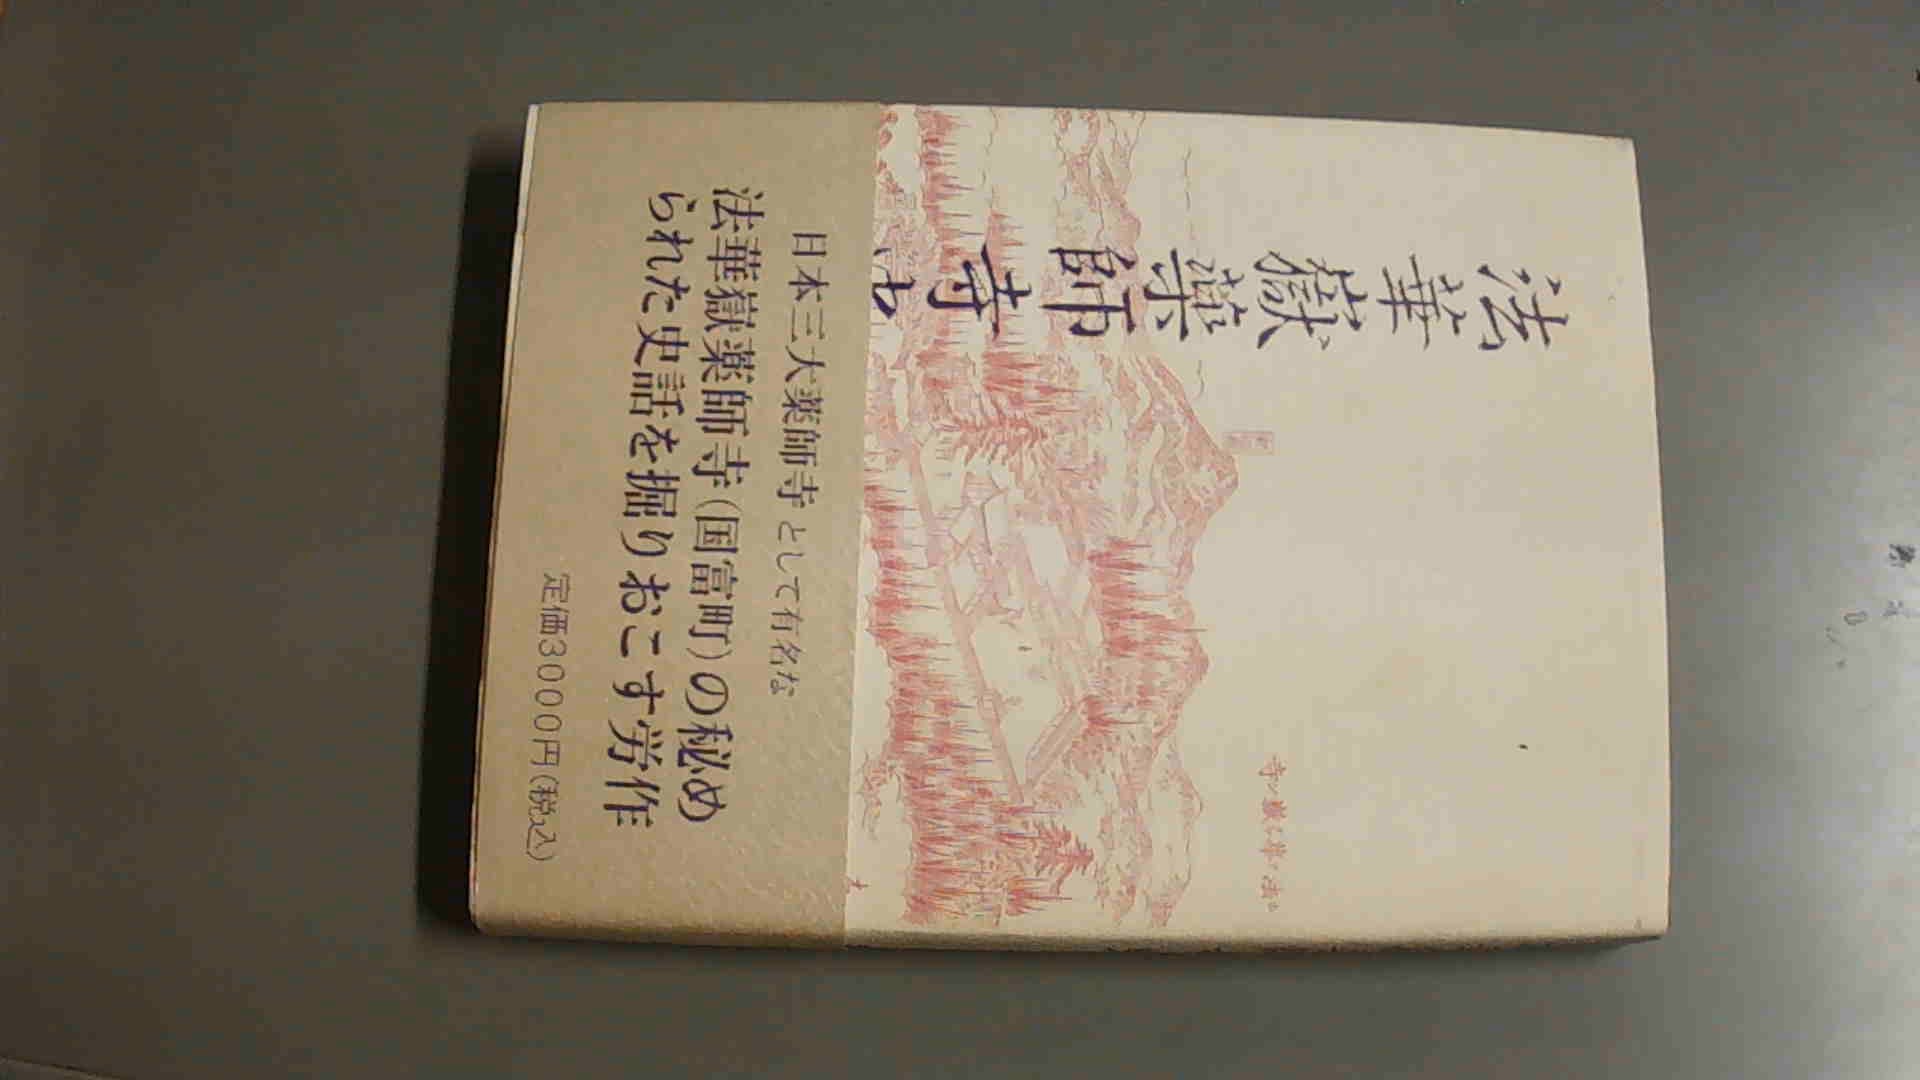 法華嶽薬師寺
日本三大薬師寺として有名な
法華嶽薬師寺(国富町)の秘め
られた史話を掘りおこす労作
定価3000円(税込)